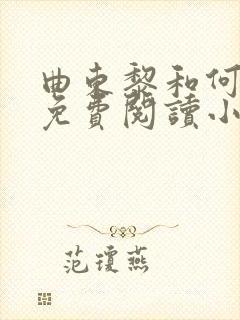 曲東黎和何
免費閱讀小
范瓊燕